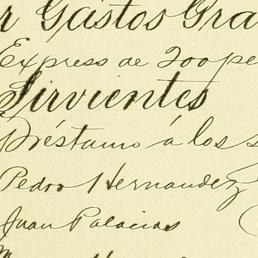 r Gastos Gra
Express de 200 pe
Sirvientes
Préstamo á los s
Pedro Hernandez
Juan Palacios